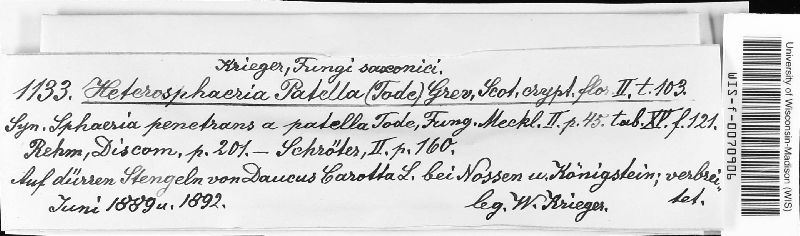 Krieger, Fungi saxonici.
1133. Heterosphaeria Patella (Tode) Grev, Scot. crypt. flor. II. t. 103.
Syn. Sphaeria penetrans a patella Tode, Fung. Meckl. II. p. 45. tab. XV. f. 121.
Rehm, Discom. p. 201. — Schröter, II. p. 160.
Auf dürren Stengeln von Daucus Carotta L. bei Nossen u. Königstein; verbrei-
tet.
Juni 1889 u. 1892. leg. W. Krieger.
WIS-F-0070906
University of Wisconsin-Madison (WIS)